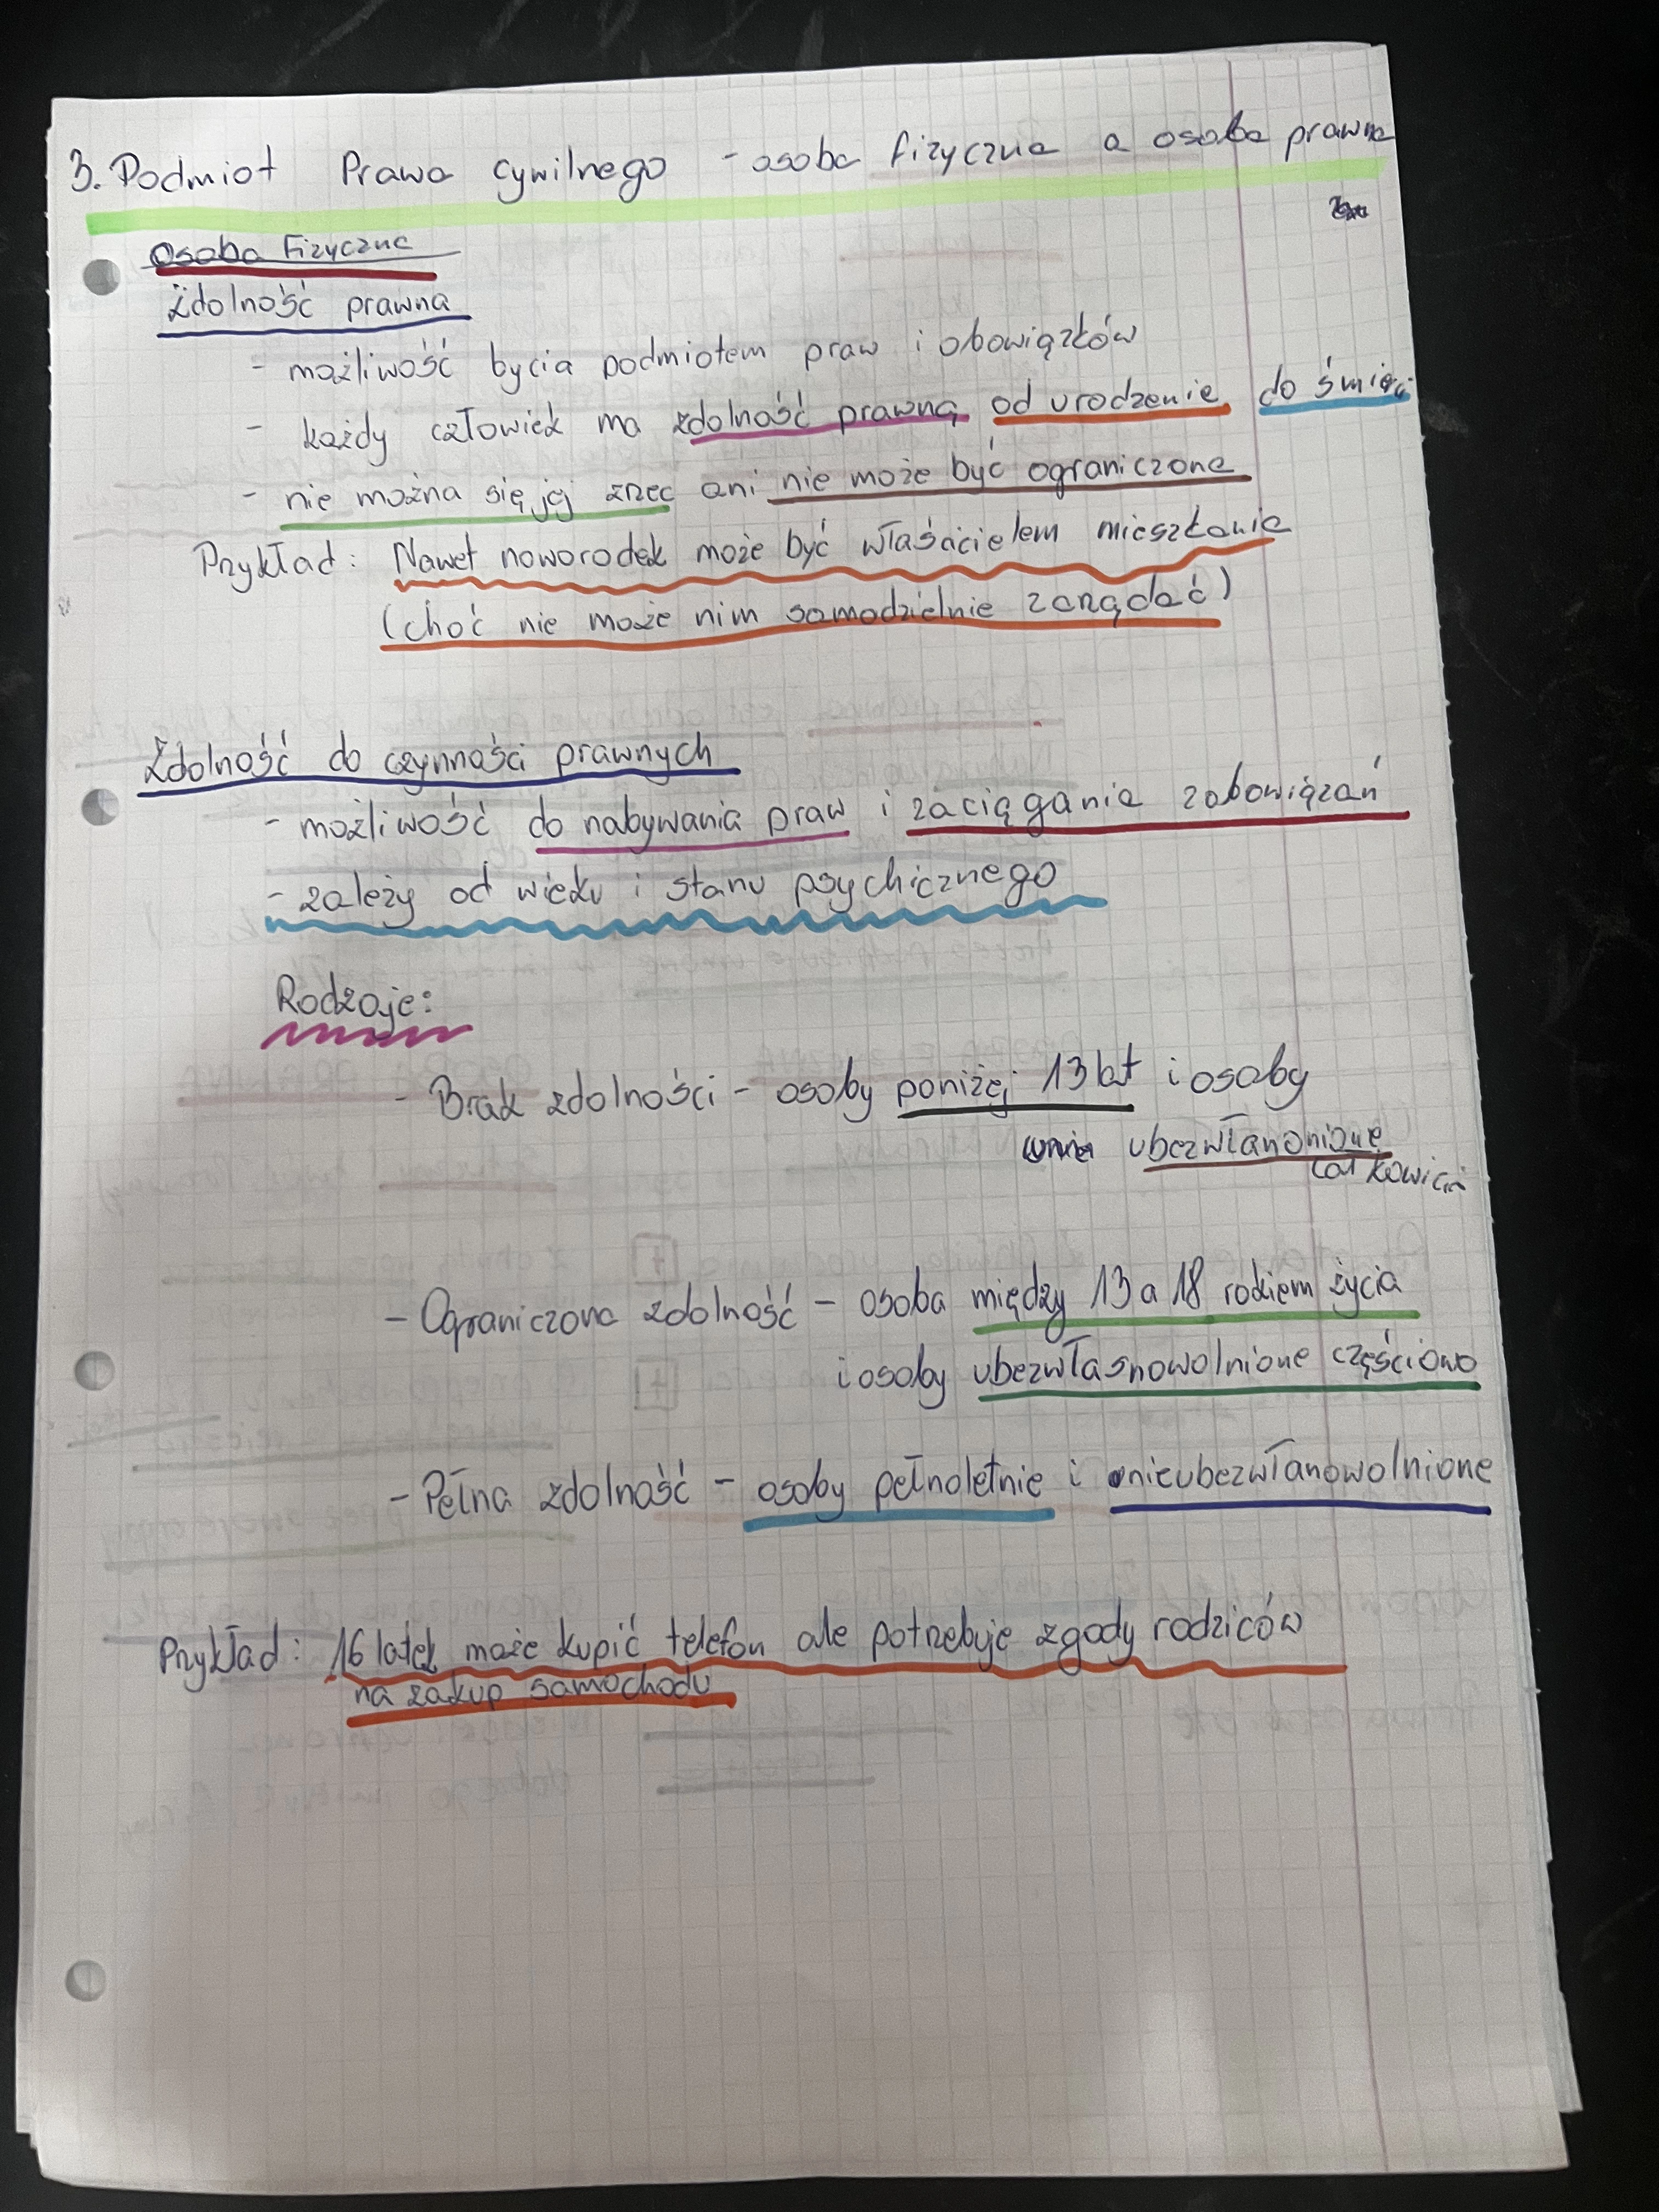 3. Podmiot Prawa cywilnego - osoba fizyczna a osoba prawna
Osoba Fizyczna
Zdolność prawna
- możliwość bycia podmiotem praw i obowiązków
- każdy człowiek ma zdolność prawną od urodzenia do śmierci
- nie można się jej zrzec ani nie może być ograniczona
Przykład: Nawet noworodek może być właścicielem mieszkania
(choć nie może nim samodzielnie zarządać)
Zdolność do czynności prawnych
- możliwość do nabywania praw i zaciągania zobowiązań
- zależy od wieku i stanu psychicznego
Rodzaje:
- Brak zdolności - osoby poniżej 13 lat i osoby
ubezwłanonione
całkowicie
- Ograniczona zdolność - osoba między 13 a 18 rokiem życia
i osoby ubezwłasnowolnione częściowo
- Pełna zdolność - osoby pełnoletnie i nieubezwłanowolnione
Przykład: 16 latek może kupić telefon ale potrzebuje zgody rodziców
na zakup samochodu